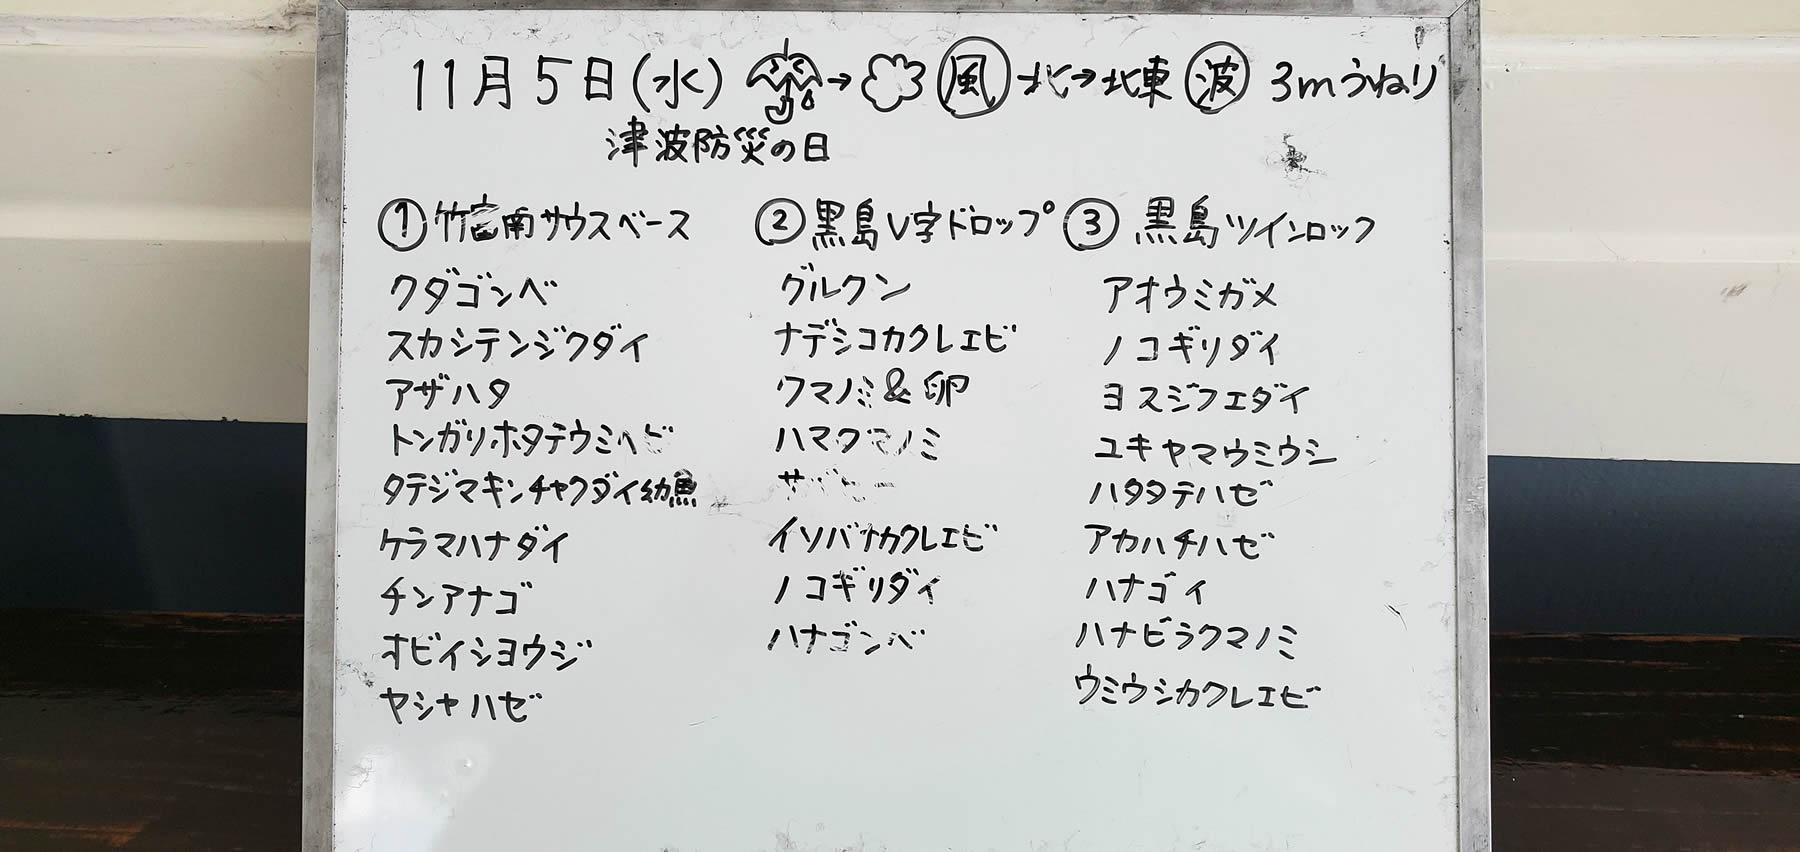 11月5日(水) → 風 北→北東 波 3mうねり
津波防災の日
① 竹富南サウスベース
クダゴンベ
スカシテンジクダイ
アザハタ
トンガリホタテウミヘビ
タテジマキンチャクダイ幼魚
ケラマハナダイ
チンアナゴ
オビイシヨウジ
ヤシャハゼ
② 黒島V字ドロップ
グルクン
ナデシコカクレエビ
クマノミ&卵
ハマクマノミ
イソバナカクレエビ
ノコギリダイ
ハナゴンベ
③ 黒島ツインロック
アオウミガメ
ノコギリダイ
ヨスジフエダイ
ユキヤマウミウシ
ハタタテハゼ
アカハチハゼ
ハナゴイ
ハナビラクマノミ
ウミウシカクレエビ